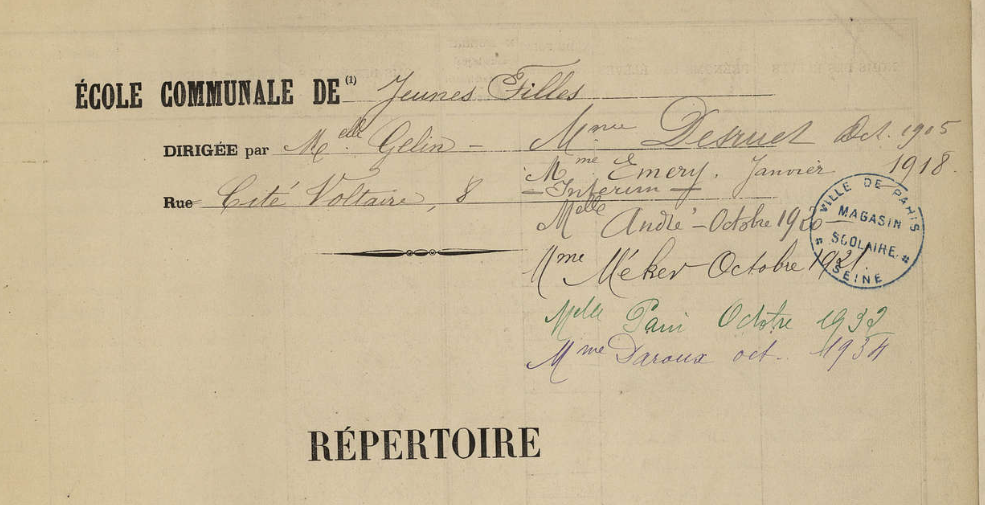 ÉCOLE COMMUNALE DE (1) Jeunes Filles
DIRIGÉE par Melle Gelin – Mme Desruet Oct. 1905
Mme Emery. Janvier 1918.
– Interim –
Rue Cité Voltaire, 8
Melle André – Octobre
Mme Méker Octobre 1921.
Melle Octbre 1932
Mme Daroux oct. 1934
VILLE DE PARIS
MAGASIN
SCOLAIRE
SEINE
RÉPERTOIRE